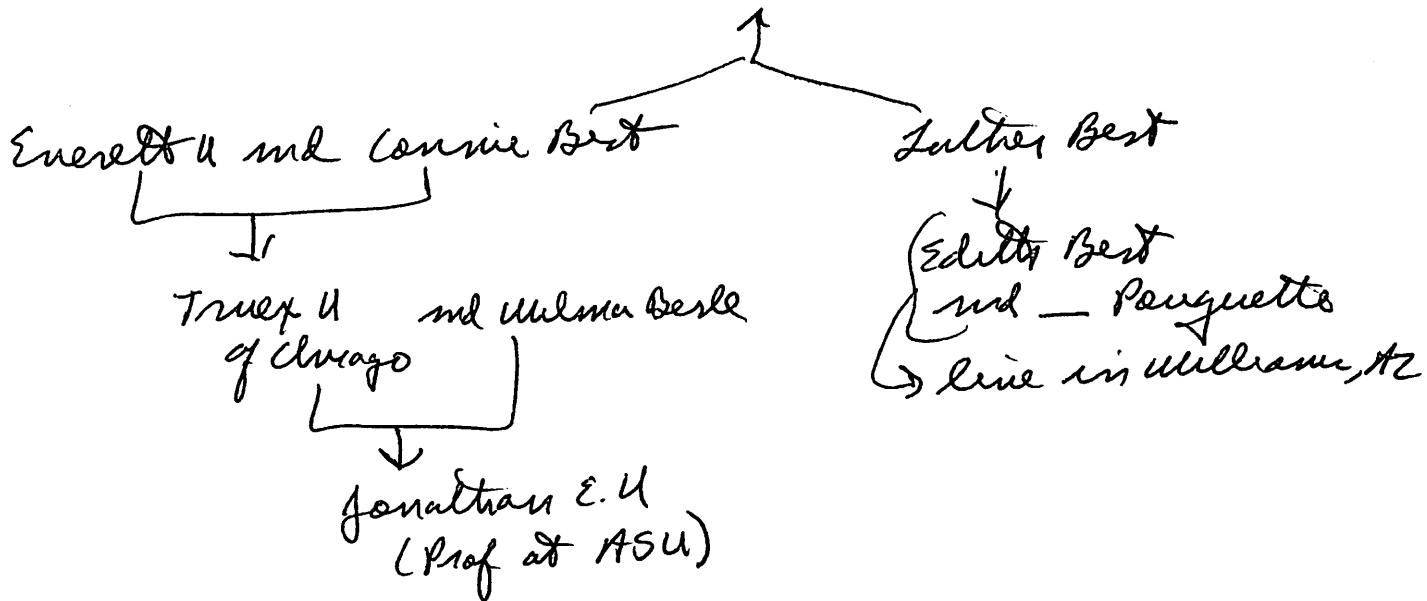 Everett U md Connie Best
Luther Best
Truex U md Wilma Besle
of Chicago
Jonathan E. U
(Prof at ASU)
Edith Best
md — Pouquette
live in Williams, AZ